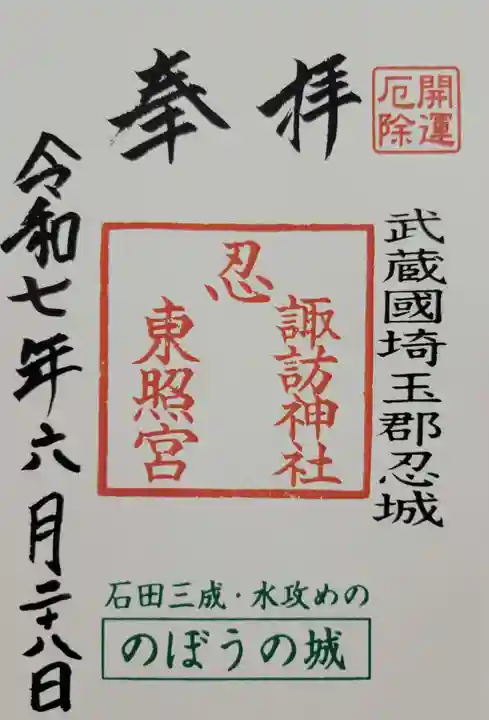 開運
厄除
奉拝
武蔵國埼玉郡忍城
忍
諏訪神社
東照宮
石田三成・水攻めの
のぼうの城
令和七年六月二十八日